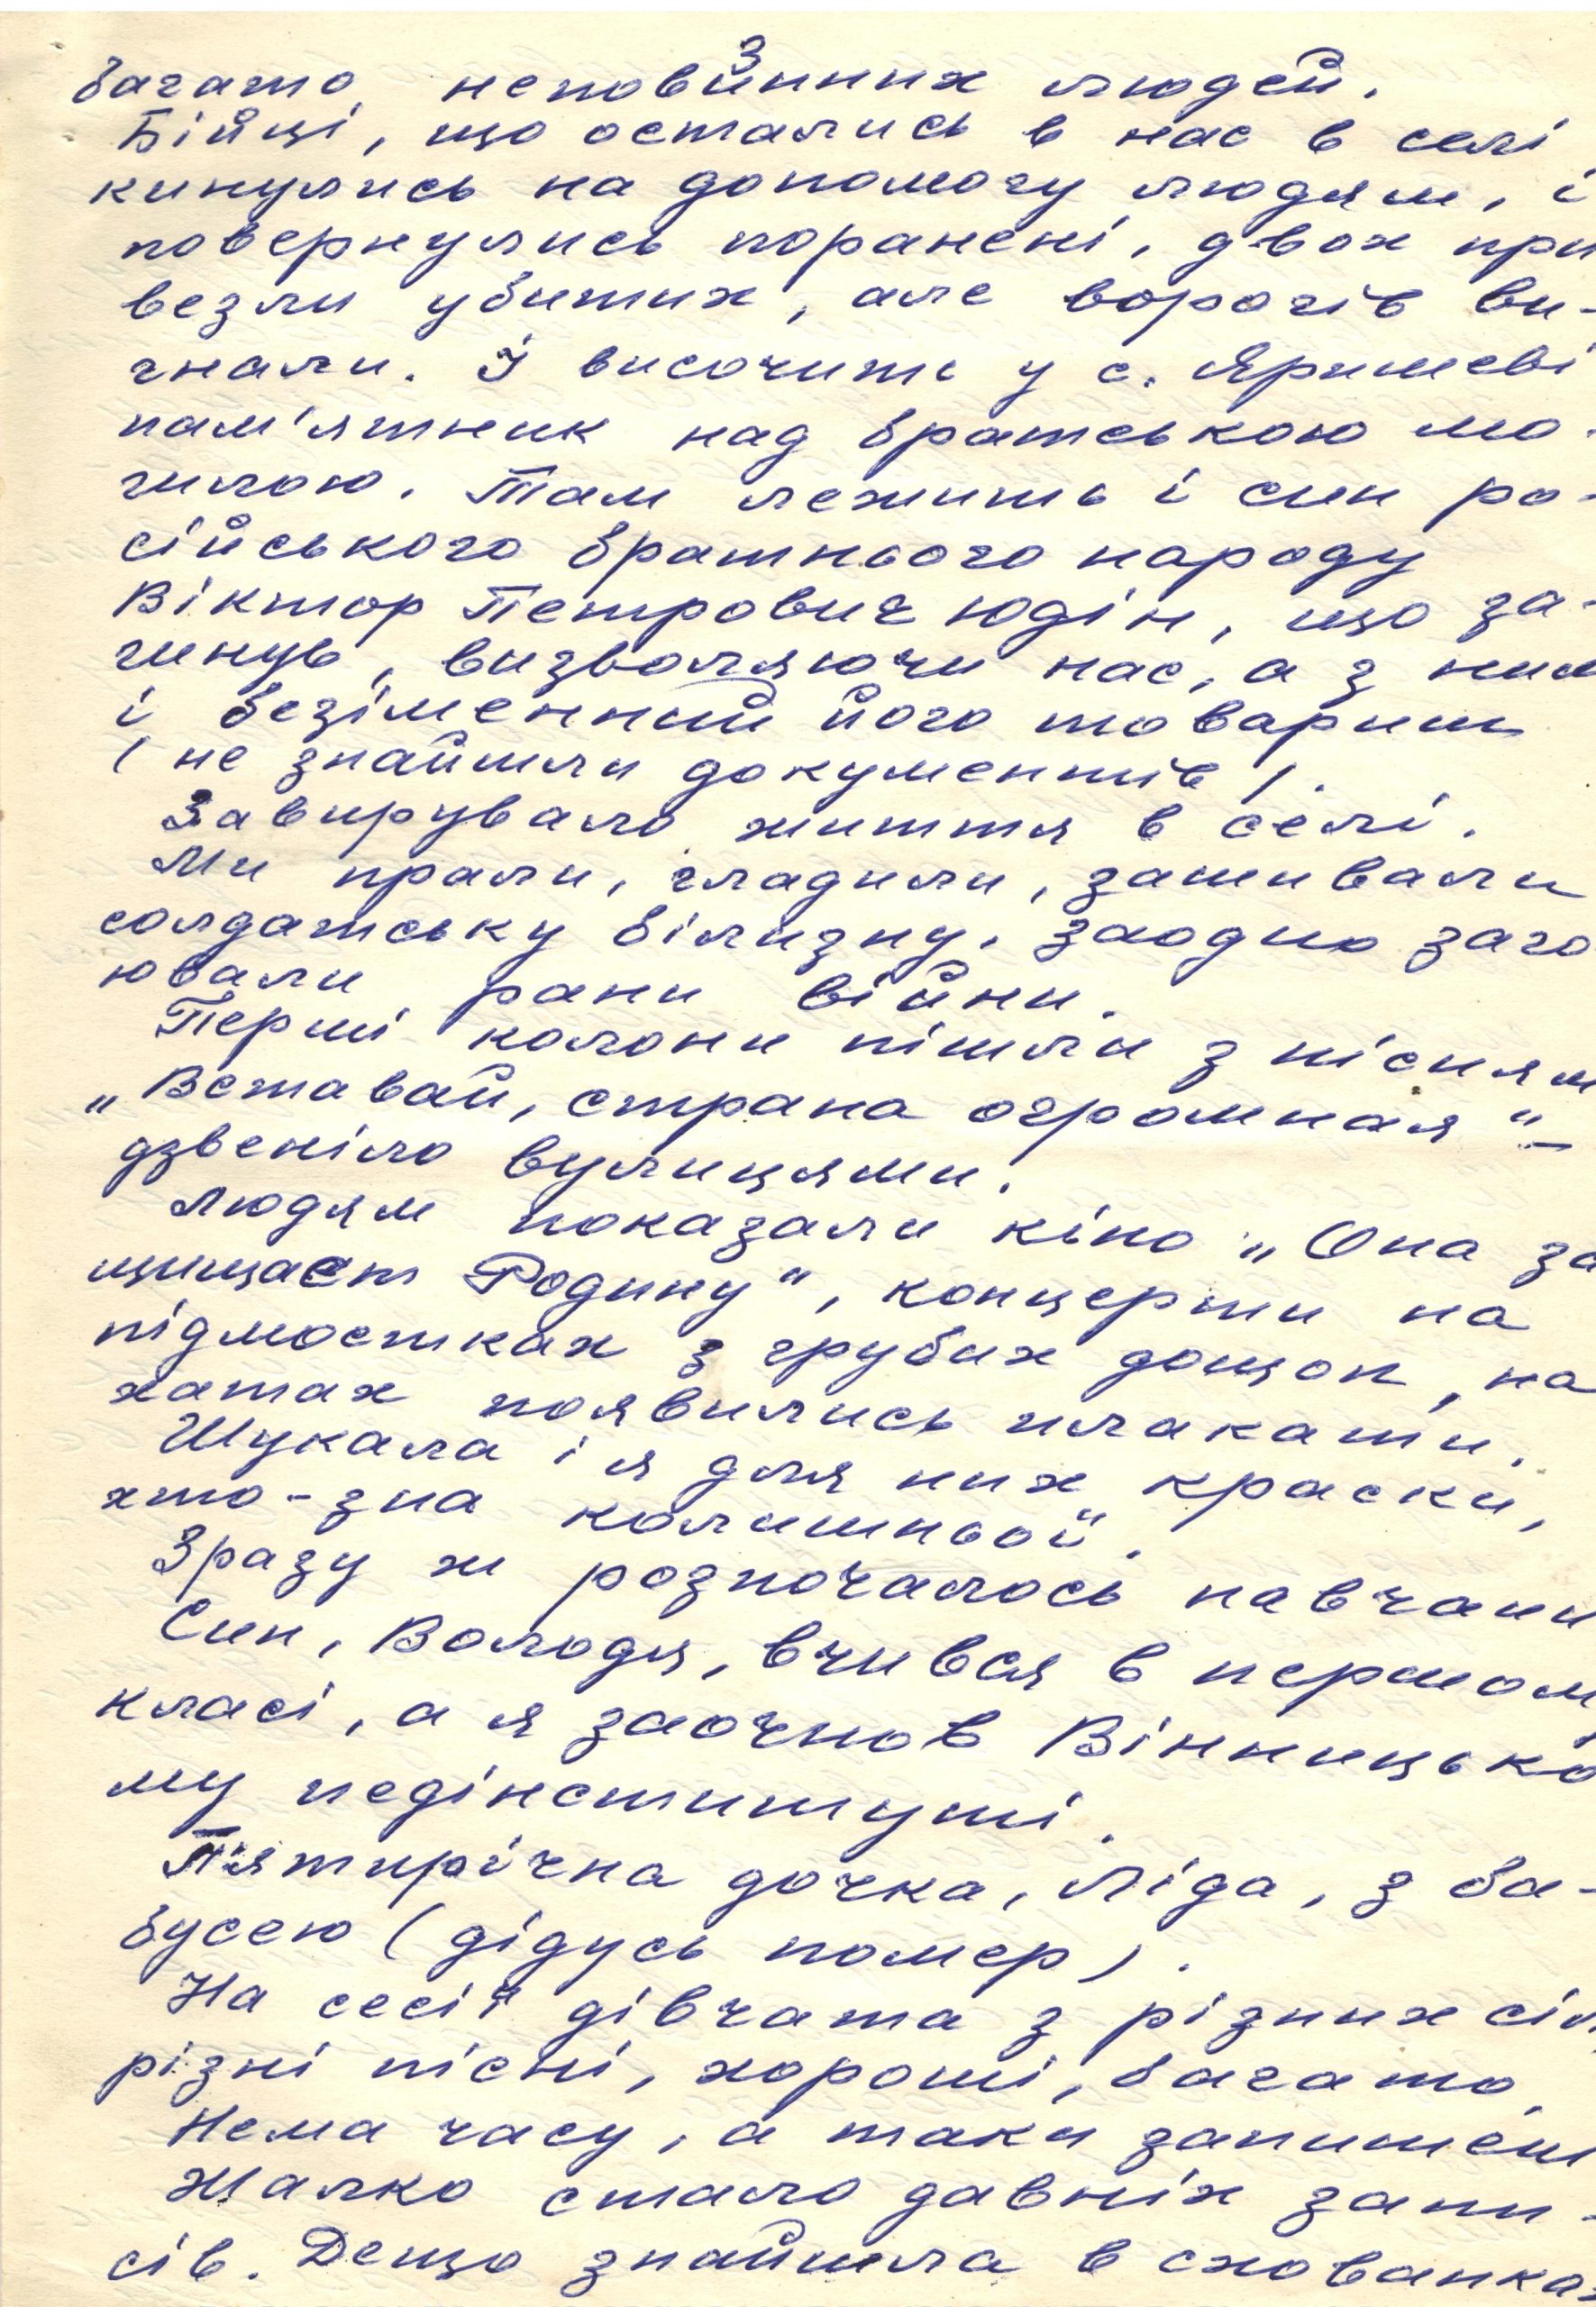 3
багато неповинних людей.
Бійці, що остались в нас в селі
кинулись на допомогу людям, і
повернулись поранені, двох при
везли убитих, але ворогів ви-
гнали. І височить у с. Яришеві
пам'ятник над братською мо-
гилою. Там лежить і син ро-
сійського братнього народу
Віктор Петрович Юдін, що за-
гинув, визволяючи нас, а з ним
і безіменний його товариш
(не знайшли документів).
Завирувало життя в селі.
Ми прали, гладили, зашивали
солдатську білизну, заодно заго
ювали рани війни.
Перші колони пішли з пісням
„Вставай, страна огромная" –
дзвеніло вулицями.
Людям показали кіно „Она за
щищает Родину", концерти на
підмостках з грубих дощок, на
хатах появились плакати.
Шукала і я для них краски,
хто-зна колишньої.
Зразу ж розпочалось навчанн
Син, Володя, вчився в першом
класі, а я заочно в Вінницько
му педінституті.
П'ятирічна дочка, Ліда, з ба-
бусею (дідусь помер).
На сесії дівчата з різних сіл,
різні пісні, хороші, багато
Нема часу, а таки запишеш
Жалко стало давніх запи-
сів. Дещо знайшла в схованках